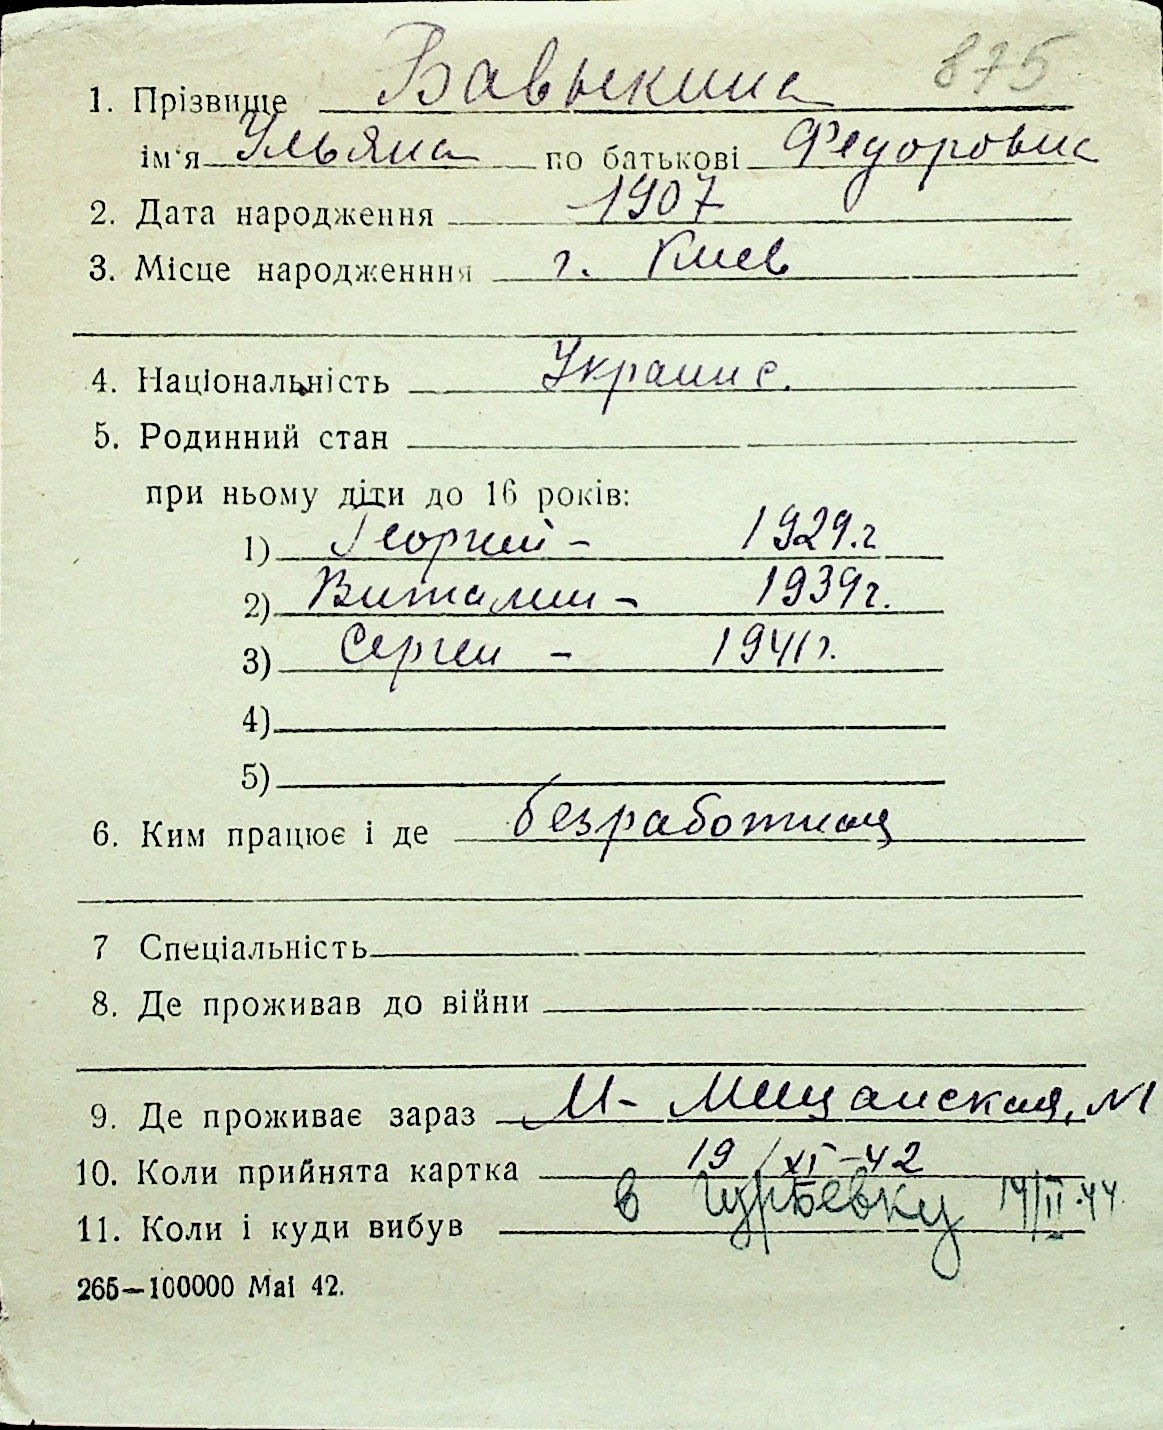 875
1. Прізвище Бавыкина
ім'я Ульяна по батькові Федоровна
2. Дата народження 1907
3. Місце народженння г. Киев
4. Національність Украинс.
5. Родинний стан
при ньому діти до 16 років:
1) Георгий - 1929.г
2) Виталии - 1939г.
3) Сергеи - 1941г.
4)
5)
6. Ким працює і де безработная
7 Спеціальність
8. Де проживав до війни
9. Де проживає зараз М- Мещанская, №1
10. Коли прийнята картка 19/XI-42
11. Коли і куди вибув в Гурьевку 14/II.44.
265—100000 Маі 42.